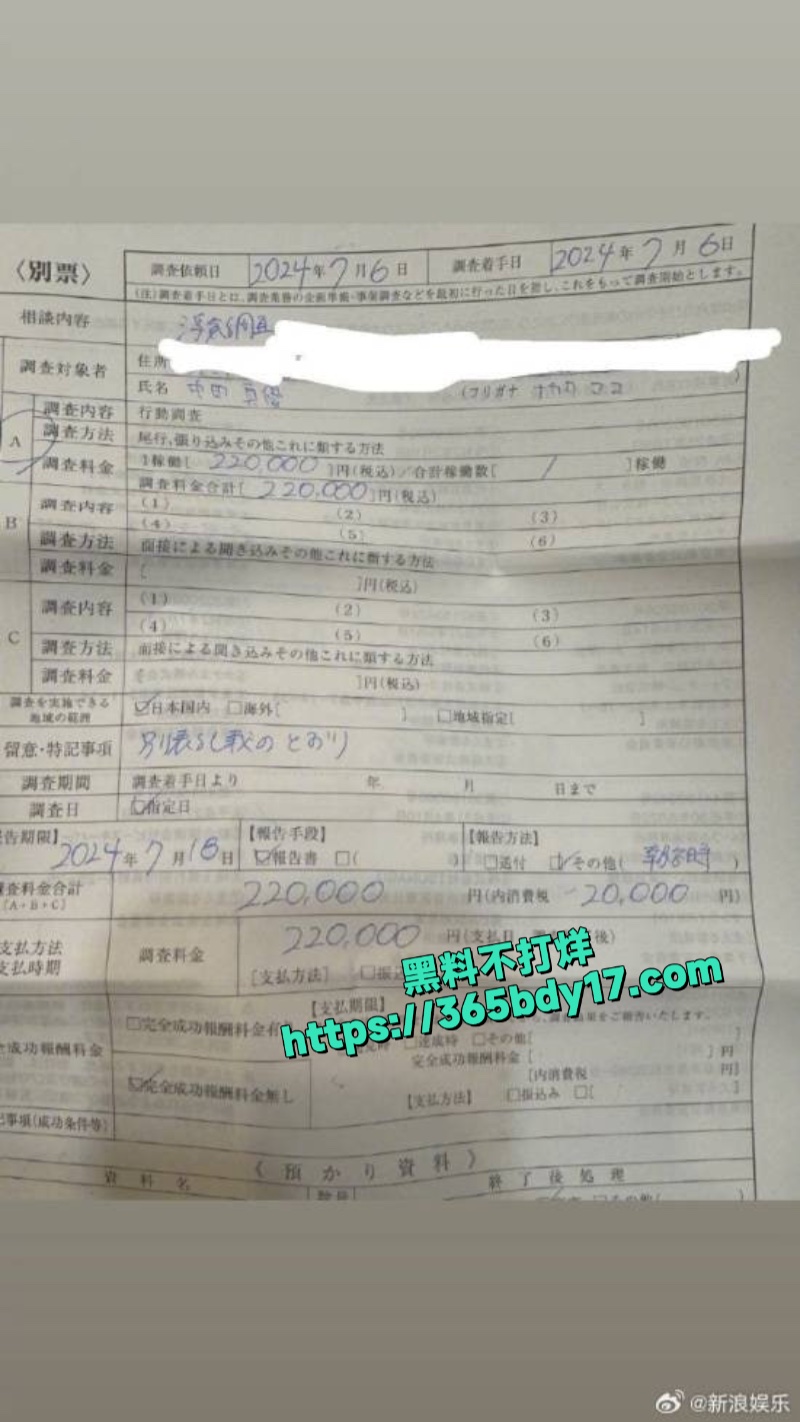 〈別票〉
調査依頼日 2024年7月6日 調査着手日 2024年7月6日
(注)調査着手日とは、調査業務の企画準備・事前調査などを最初に行った日を指し、これをもって調査開始とします。
相談内容 浮気調査
調査対象者 住所
氏名 真 (フリガナ )
A 調査内容 行動調査
調査方法 尾行、張り込みその他これに類する方法
調査料金 1稼働[220,000]円(税込)/合計稼働数[ / ]稼働
調査料金合計[220,000]円(税込)
B 調査内容 (1) (2) (3)
(4) (5) (6)
調査方法 面接による聞き込みその他これに類する方法
調査料金 [ ]円(税込)
C 調査内容 (1) (2) (3)
(4) (5) (6)
調査方法 面接による聞き込みその他これに類する方法
調査料金 [ ]円(税込)
調査を実施できる地域の範囲 ☑日本国内 □海外[ ] □地域指定[ ]
留意・特記事項 別表記載のとおり
調査期間 調査着手日より 年 月 日まで
調査日 ☑指定日
告期限】 2024年7月18日 【報告手段】 ☑報告書 □( ) 【報告方法】 □送付 ☑その他( 時 )
査料金合計 [A+B+C] 220,000 円(内消費税 20,000 円)
支払方法
支払時期
調査料金 220,000 円(支払日 後)
[支払方法] □振込
黑料不打烊
https://365bdy17.com
全成功報酬料金 □完全成功報酬料金有 【支払期限】
時 □達成時 □その他[ ]
完全成功報酬料金[ ]円
[内消費税 円]
☑完全成功報酬料金無し 【支払方法】 □振込み □[ ]
記事項(成功条件等)
《 預かり資料 》
資料名 数量 終了後処理
□その他( )
@新浪娱乐